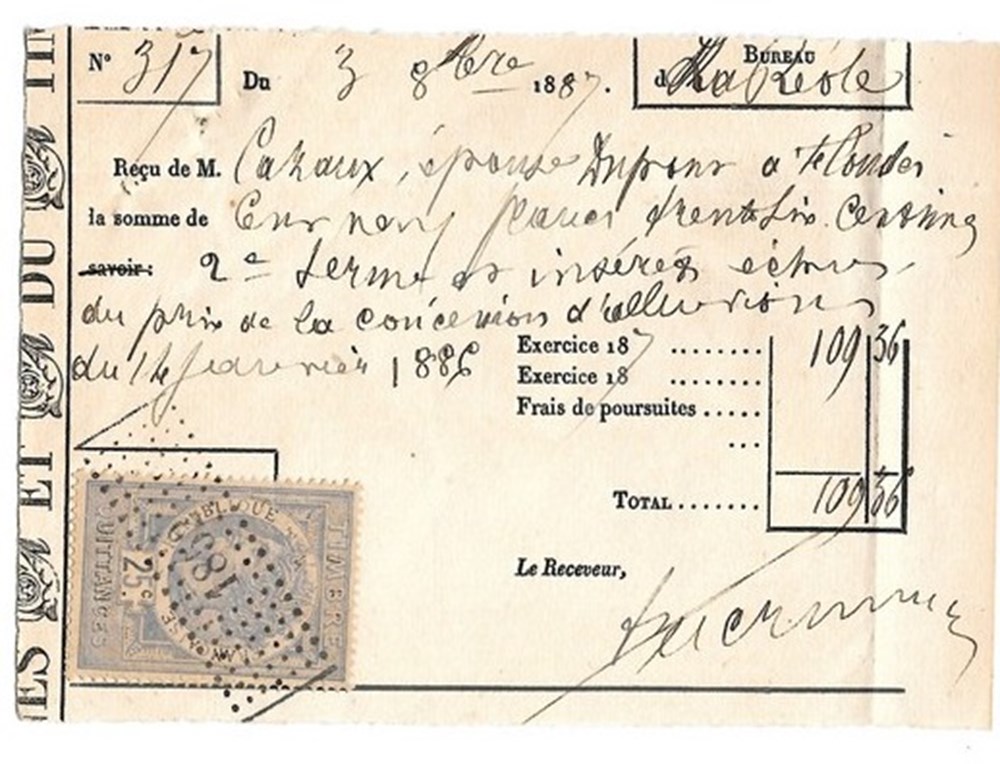 N° 317
Du 3 8bre 1887.
BUREAU
d La Réole
Reçu de M. Cazaux, épouse Dupons a Floudes
la somme de Cent neuf francs trente six centimes
savoir: 2e terme et intérêts échus
du prix de la concession d'alluvions
du 14 janvier 1886
Exercice 187 ........ 109 36
Exercice 18 ........
Frais de poursuites .....
...
TOTAL ....... 109 36
Le Receveur,
ES ET DU TI
RÉPUBLIQUE FRANÇAISE
TIMBRE
QUITTANCES
25c
1865